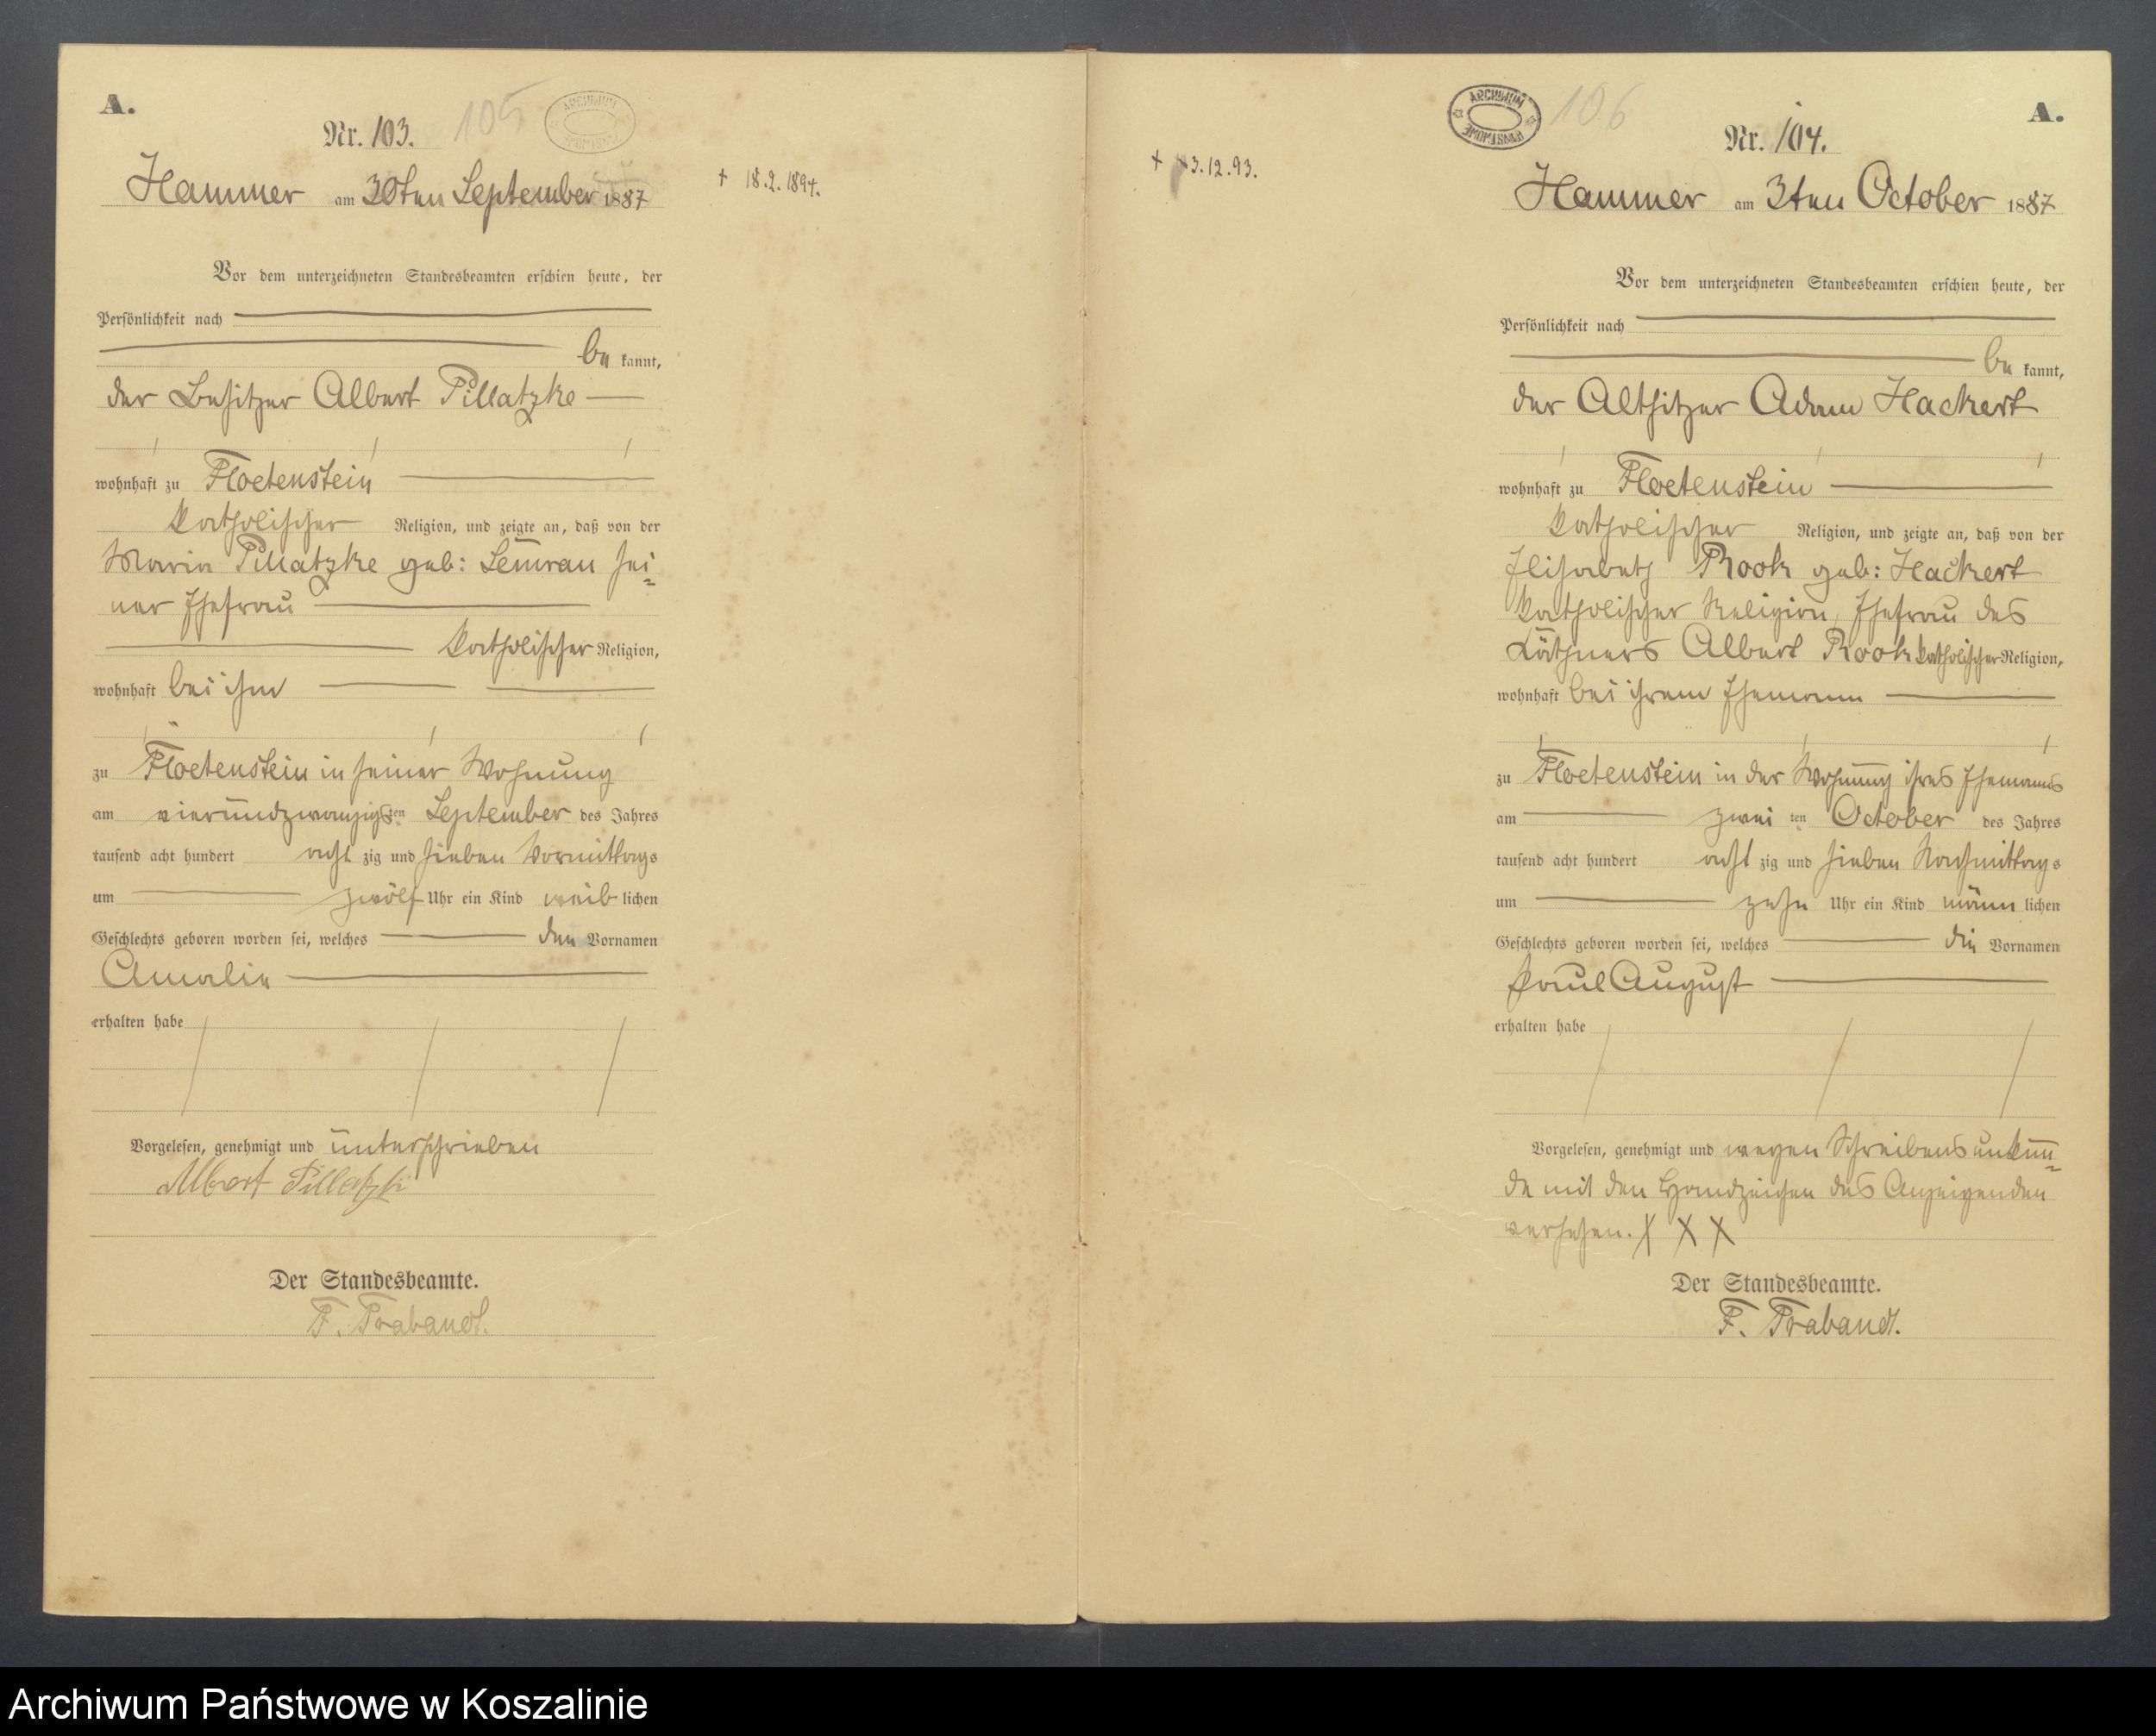 A.
105
ARCHIWUM
Nr. 103.
Hammer am 30ten September 1887
+ 18.2.1894.
Vor dem unterzeichneten Standesbeamten erschien heute, der
Persönlichkeit nach
be kannt,
der Besitzer Albert Pillatzke
wohnhaft zu Floetenstein
katholischer Religion, und zeigte an, daß von der
Maria Pillatzke geb: Lemran sei=
ner Ehefrau
katholischer Religion,
wohnhaft bei ihm
zu Floetenstein in seiner Wohnung
am vierundzwanzigsten September des Jahres
tausend acht hundert acht zig und sieben Vormittags
um zwölf Uhr ein Kind weib lichen
Geschlechts geboren worden sei, welches den Vornamen
Amalie
erhalten habe
Vorgelesen, genehmigt und unterschrieben
Albert Pillatzki
Der Standesbeamte.
F. Trabandt.
ARCHIWUM
PAŃSTWOWE
106
A.
Nr. 104.
+ 3.12.93.
Hammer am 3ten October 1887
Vor dem unterzeichneten Standesbeamten erschien heute, der
Persönlichkeit nach
be kannt,
der Altsitzer Adam Hackert
wohnhaft zu Floetenstein
katholischer Religion, und zeigte an, daß von der
Elisabeth Rook geb: Hackert
katholischer Religion, Ehefrau des
Käthners Albert Rook katholischer Religion,
wohnhaft bei ihrem Ehemann
zu Floetenstein in der Wohnung ihres Ehemanns
am zwei ten October des Jahres
tausend acht hundert acht zig und sieben Nachmittags
um zehn Uhr ein Kind männ lichen
Geschlechts geboren worden sei, welches die Vornamen
Paul August
erhalten habe
Vorgelesen, genehmigt und wegen Schreibensunkun=
de mit den Handzeichen des Anzeigenden
versehen. X X X
Der Standesbeamte.
F. Trabandt.
Archiwum Państwowe w Koszalinie